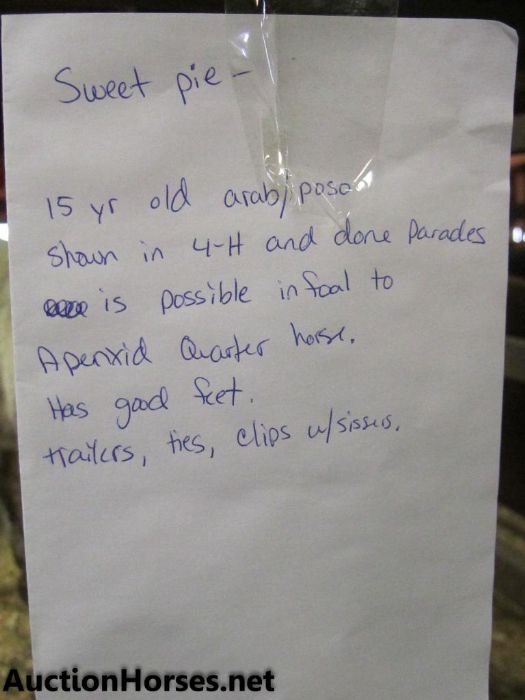 Sweet pie -
15 yr old arab/poso
Shown in 4-H and done Parades
is possible in foal to
Apenxid Quarter horse.
Has good feet.
trailers, ties, clips w/sissers.
AuctionHorses.net